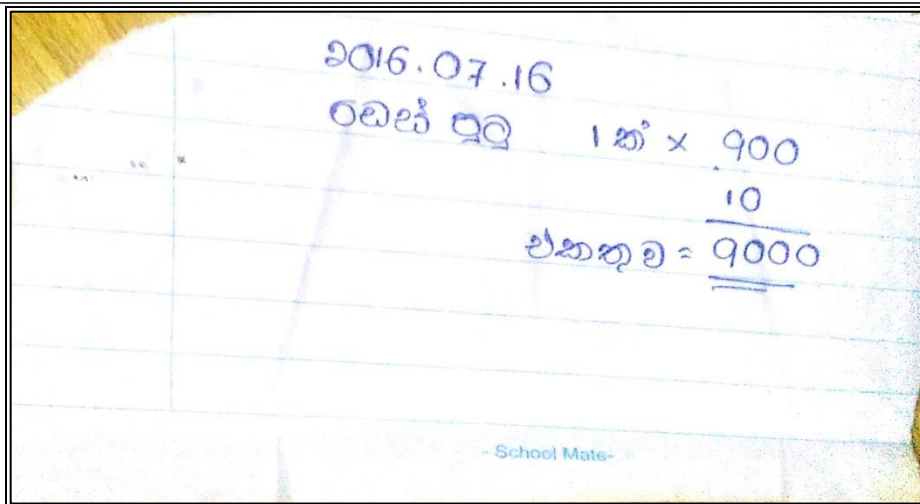 2016.07.16
ඩෙස් පුටු 1 ක් × 900
10
එකතුව = 9000
- School Mate-